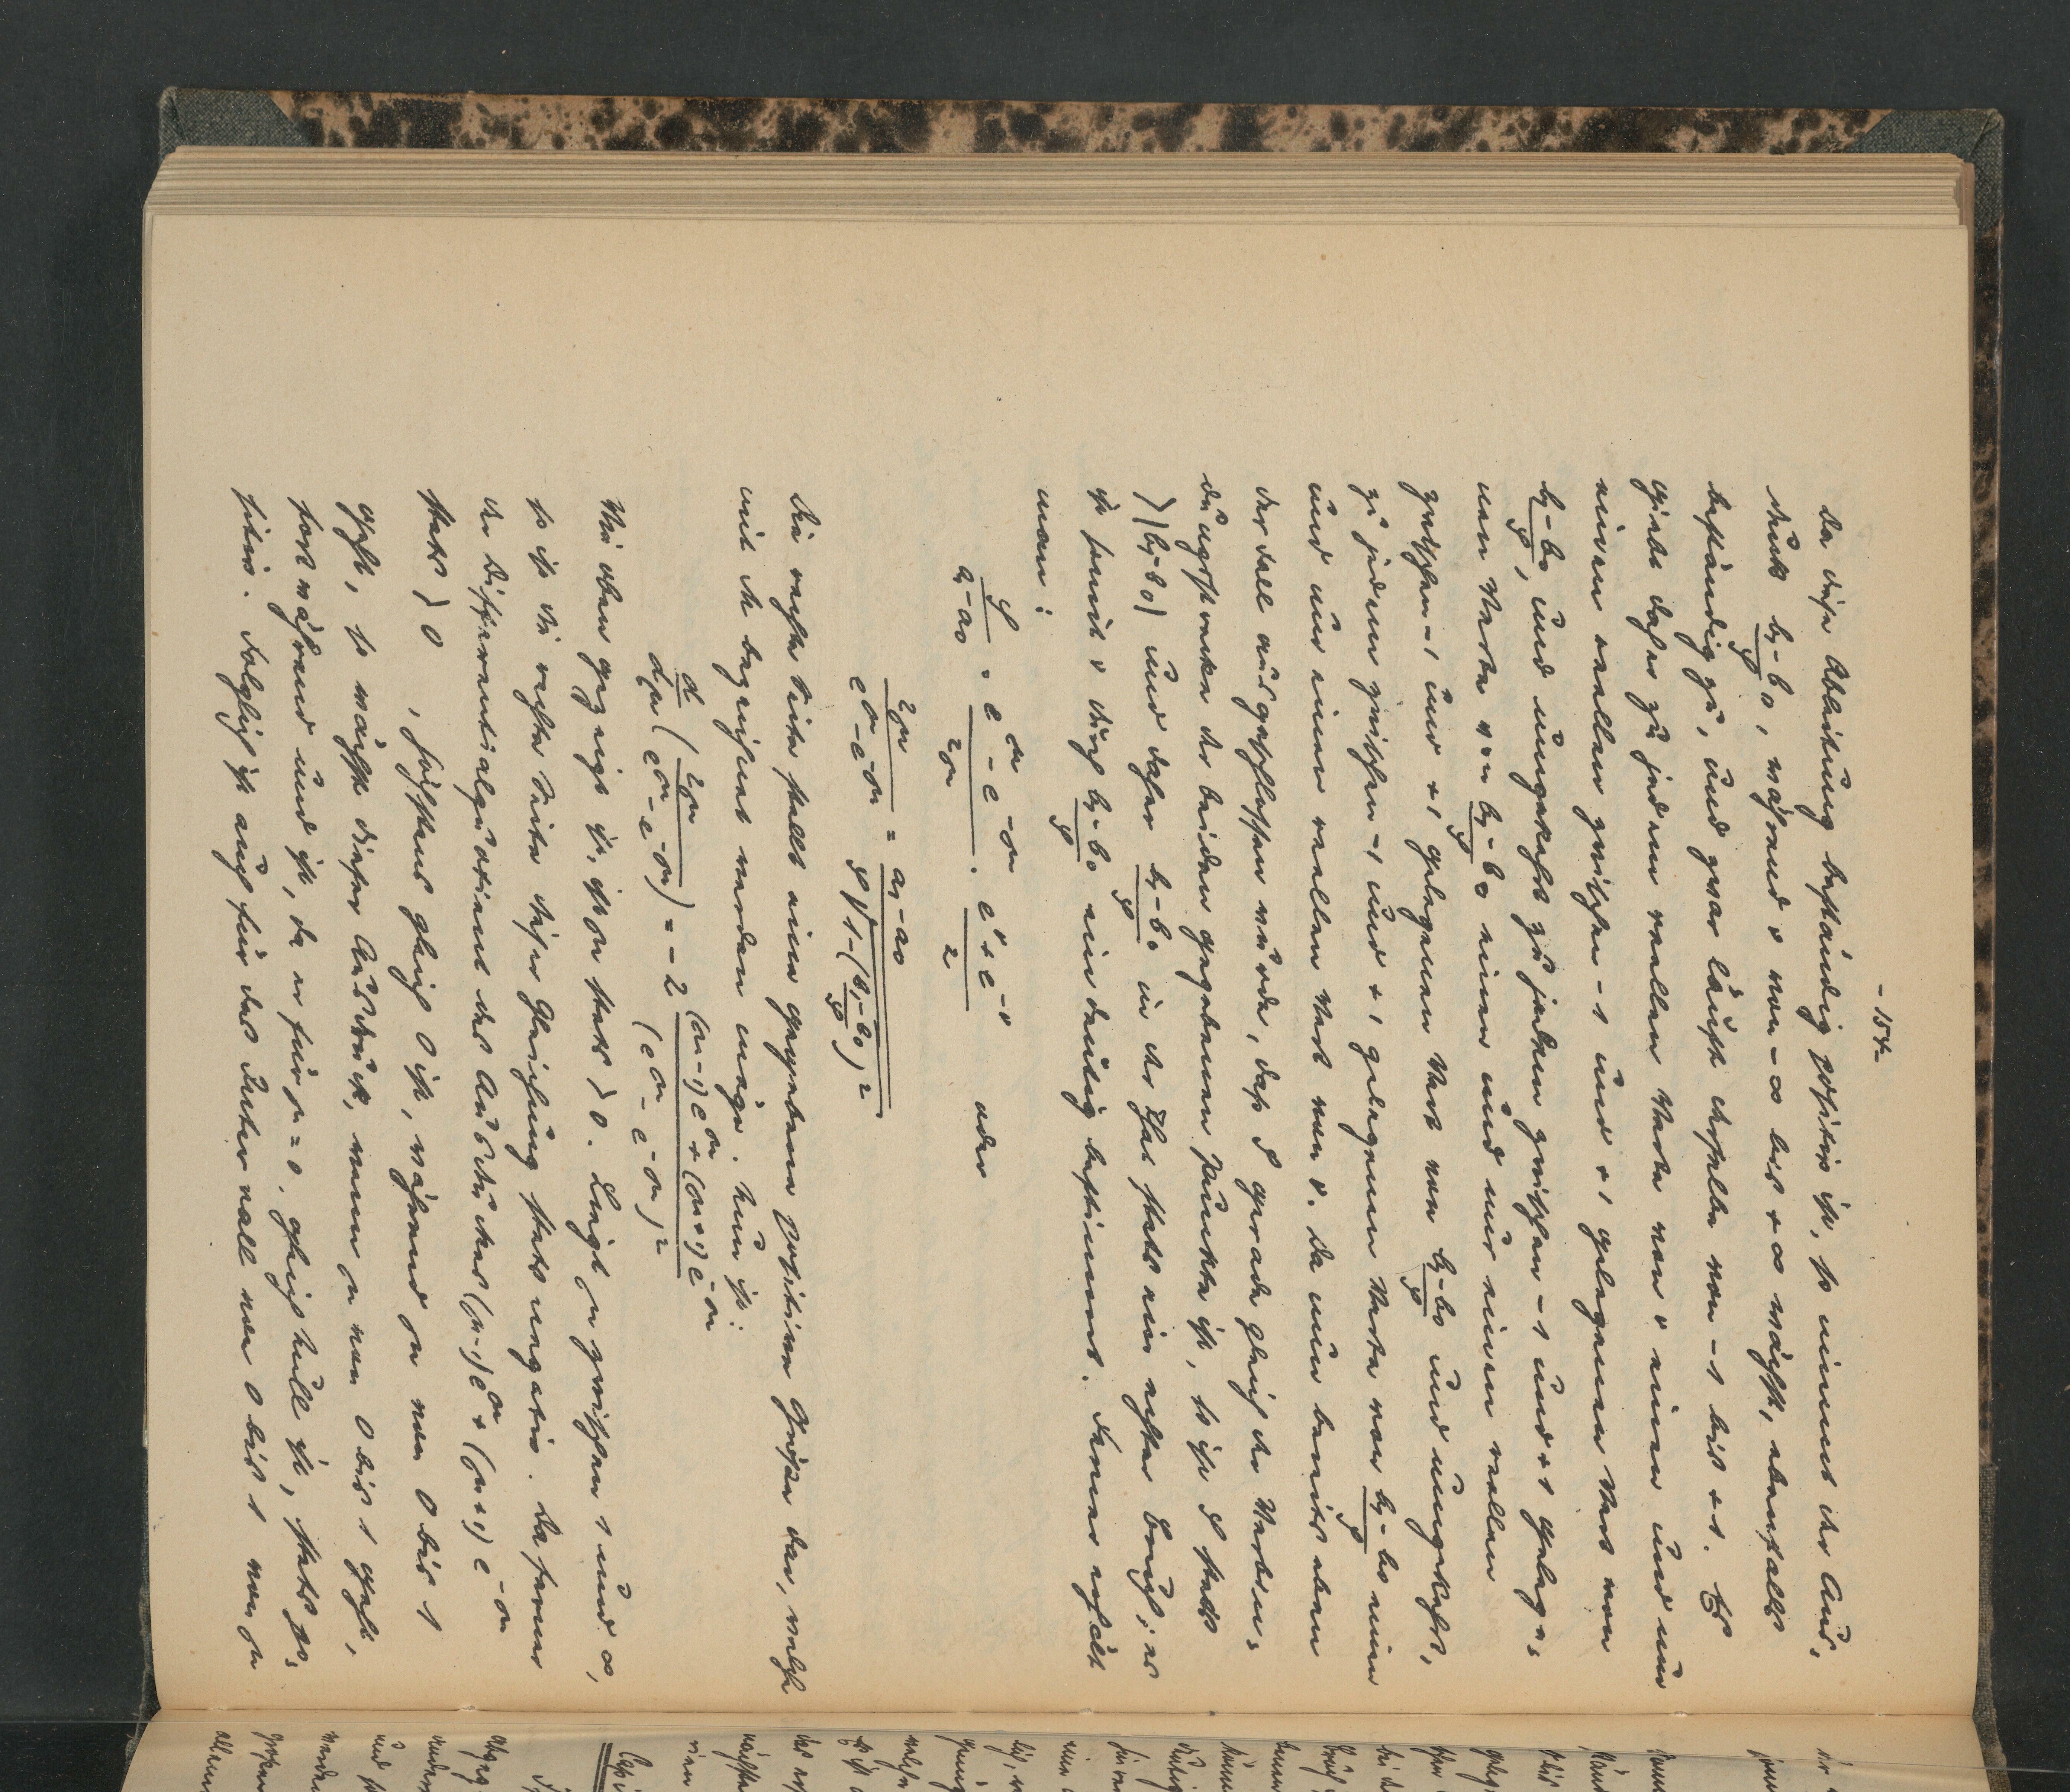 - 154 -
Da diese Ableitung beständig positiv ist, so nimmt der Aus-
druck (b₁-b₀)/ρ, während v von -∞ bis +∞ wächst, ebenfalls
beständig zu, und zwar läuft derselbe von -1 bis +1. Es
giebt daher zu jedem reellen Werte von v einen und nur
einen reellen zwischen -1 und +1 gelegenen Wert von
(b₁-b₀)/ρ, und umgekehrt zu jedem zwischen -1 und +1 gelege-
nen Werte von (b₁-b₀)/ρ einen und nur einen reellen
zwischen -1 und +1 gelegenen Wert von (b₁-b₀)/ρ und umgekehrt,
zu jedem zwischen -1 und +1 gelegenen Werte von (b₁-b₀)/ρ einen
und nur einen reellen Wert von v. Da nun bereits oben
der Fall ausgeschlossen wurde, dass ρ gerade gleich der Verbin-
dungsstrecke der beiden gegebenen Punkte ist, so ist ρ stets
> |b₁-b₀| und daher (b₁-b₀)/ρ in der That stets ein echter Bruch; es
ist somit v durch (b₁-b₀)/ρ eindeutig bestimmt. Ferner erhält
man:
ρ/(a₁-a₀) = (e^μ - e^-μ)/2μ · (e^v + e^-v)/2 oder
2μ/(e^μ - e^-μ) = (a₁-a₀)/(ρ√(1-((b₁-b₀)/ρ)²))
Die rechte Seite stellt eine gegebene positive Grösse dar, welche
mit be bezeichnet werden möge. Nun ist:
d/dμ (2μ/(e^μ - e^-μ)) = -2 ((μ-1)e^μ + (μ+1)e^-μ)/(e^μ - e^-μ)²
Wie oben gezeigt ist, ist μ stets > 0. Liegt μ zwischen 1 und ∞,
so ist die rechte Seite dieser Gleichung stets negativ. Da ferner
der Differentialquotient des Ausdruckes (μ-1)e^μ + (μ+1)e^-μ
stets > 0, höchstens gleich 0 ist, während μ von 0 bis 1
geht, so wächst dieser Ausdruck, wenn μ von 0 bis 1 geht,
fortwährend und ist, da er für μ = 0 gleich Null ist, stets po-
sitiv. Folglich ist auch für das Intervall von 0 bis 1 von μ